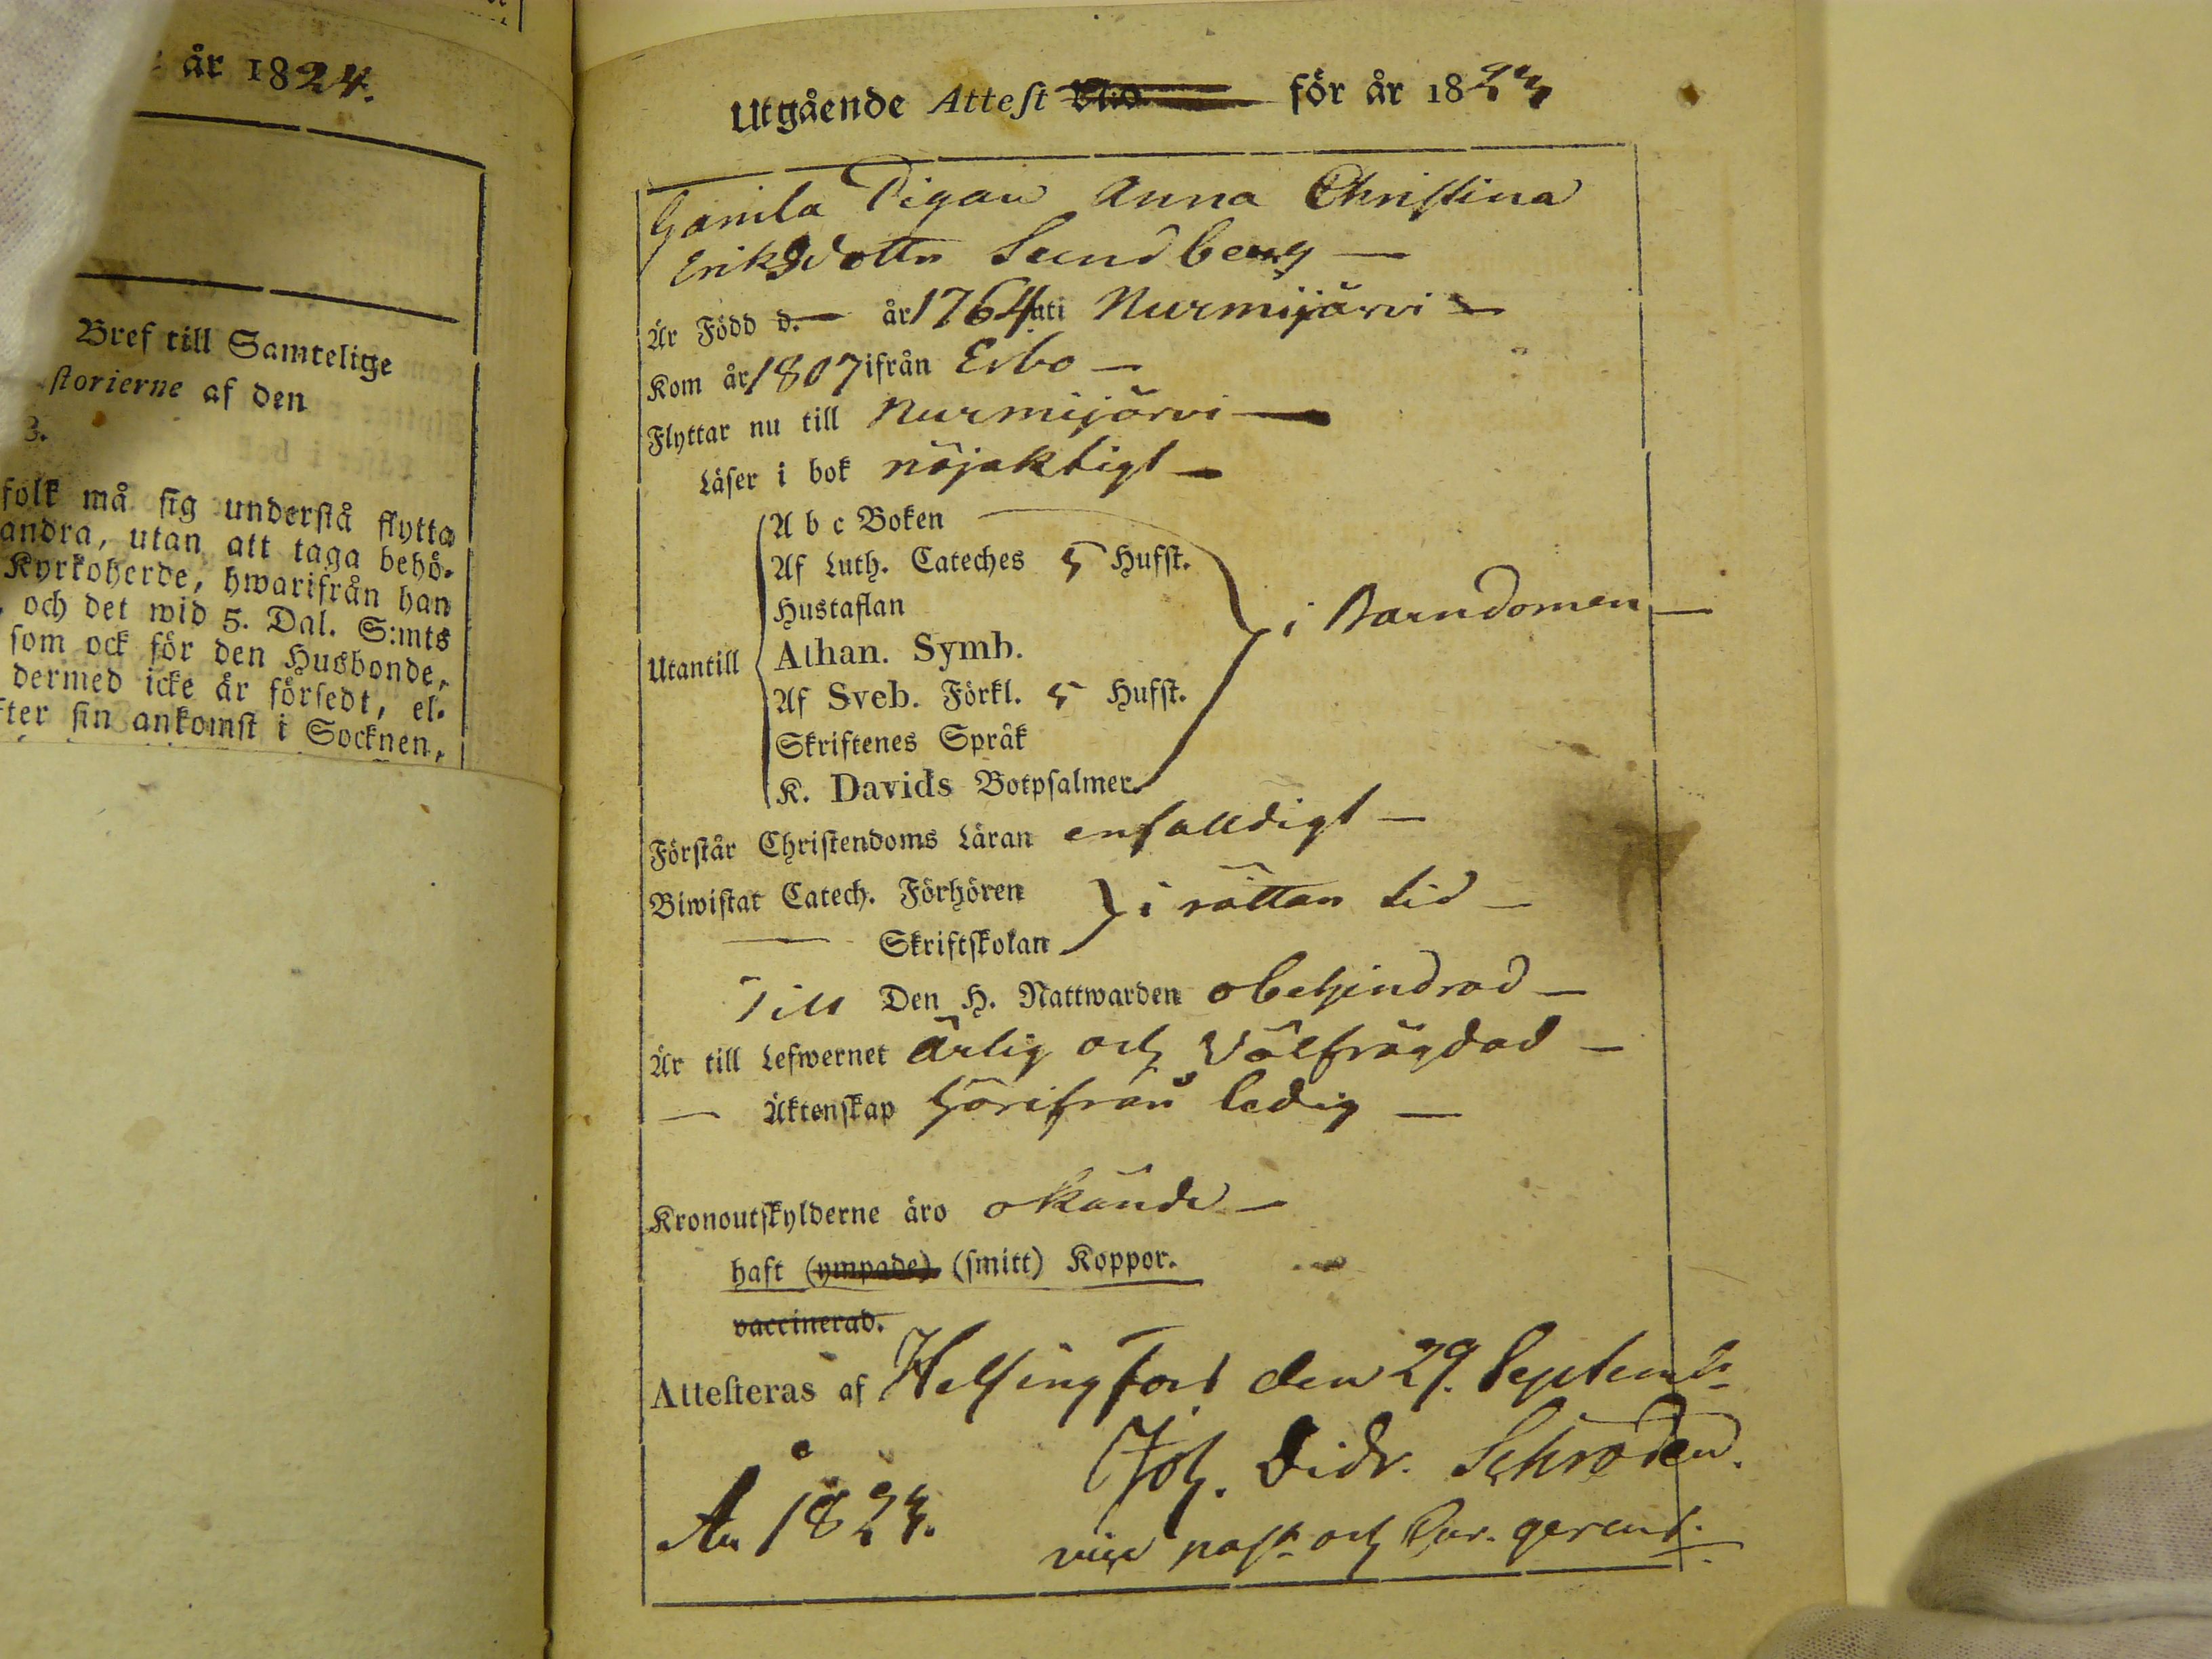 år 1824.
Bref till Samtelige
storierne af den
3.
folk må sig understå flytta
andra, utan att taga behö-
Kyrkoherde, hwarifrån han
, och det wid 5. Dal. S:mts
som ock för den Husbonde,
dermed icke är försedt, el-
fter sin ankomst i Socknen,
Utgående Attest för år 1823
Gamla Pigan Anna Christina
Eriksdotter Sundberg —
Är Född d. — år 1764 uti Nurmijärvi —
Kom år 1807 ifrån Esbo —
Flyttar nu till Nurmijärvi —
Läser i bok nöjaktigt —
A b c Boken
Af Luth. Cateches 5 Hufst.
Hustaflan
i Barndomen —
Utantill Athan. Symb.
Af Sveb. Förkl. 5 Hufst.
Skriftenes Språk
K. Davids Botpsalmer.
Förstår Christendoms Läran enfalldigt —
Biwistat Catech. Förhören } i rättan tid —
— Skriftskolan
Till Den H. Nattwarden obehindrad —
Är till Lefwernet ärlig och välfrägdad —
— Äktenskap härifrån ledig —
Kronoutskylderne äro okände —
haft (ympade) (smitt) Koppor.
vaccinerad.
Attesteras af Helsingfors den 29. Septemb.
År 1823. Joh. Didr. Schröden.
vice past. och Cur. gerent.